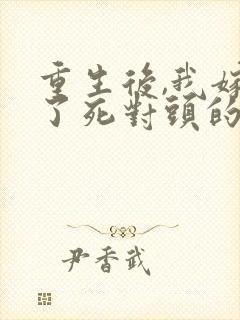 重生後,我嫁
了死對頭的
尹香武